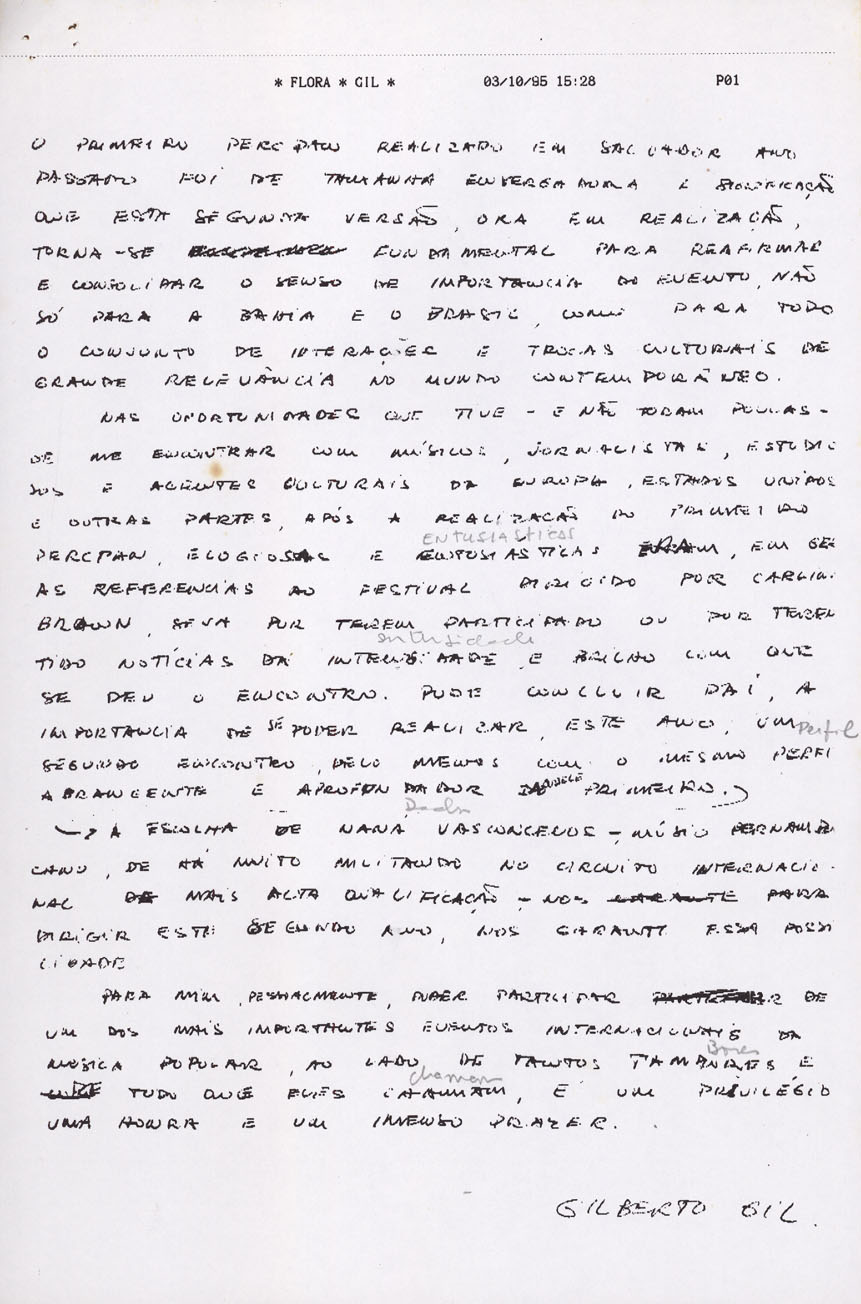 * FLORA * GIL * 03/10/95 15:28 P01
O PRIMEIRO PERCPAN REALIZADO EM SALVADOR ANO
PASSADO FOI DE TAMANHA ENVERGADURA E SIGNIFICAÇÃO
QUE ESTA SEGUNDA VERSÃO, ORA EM REALIZAÇÃO,
TORNA-SE FUNDAMENTAL PARA REAFIRMAR
E CONSOLIDAR O SENSO DE IMPORTANCIA DO EVENTO, NÃO
SÓ PARA A BAHIA E O BRASIL, COMO PARA TODO
O CONJUNTO DE INTERAÇÕES E TROCAS CULTURAIS DE
GRANDE RELEVÂNCIA NO MUNDO CONTEMPORÂNEO.
NAS OPORTUNIDADES QUE TIVE - E NÃO FORAM POUCAS -
DE ME ENCONTRAR COM MÚSICOS, JORNALISTAS, ESTUDIO
SOS E AGENTES CULTURAIS DA EUROPA, ESTADOS UNIDOS
E OUTRAS PARTES, APÓS A REALIZAÇÃO DO PRIMEIRO
ENTUSIASTICAS
PERCPAN, ELOGIOSAS E ENTUSIASTICAS ERAM, EM GE
AS REFERENCIAS AO FESTIVAL DIRIGIDO POR CARLIN
BROWN, SEJA POR TEREM PARTICIPADO OU POR TEREM
intensidade
TIDO NOTÍCIAS DA INTENSIDADE E BRILHO COM QUE
SE DEU O ENCONTRO. PUDE CONCLUIR DAÍ, A
IMPORTANCIA DE SE PODER REALIZAR, ESTE ANO, UM Perfil
SEGUNDO ENCONTRO, PELO MENOS COM O MESMO PERFI
ABRANGENTE E APROFUNDADOR DAQUELE PRIMEIRO.
A ESCOLHA DE NANÁ VASCONCELOS - MÚSICO PERNAMBU
CANO, DE HÁ MUITO MILITANDO NO CIRCUITO INTERNACIO
NAL DE MAIS ALTA QUALIFICAÇÃO - NOS GARANTE PARA
DIRIGIR ESTE SEGUNDO ANO, NOS GARANTE ESSA POSSI
LIDADE
PARA MIM, PESSOALMENTE, PODER PARTICIPAR DE
UM DOS MAIS IMPORTANTES EVENTOS INTERNACIONAIS DA
Bores
MÚSICA POPULAR, AO LADO DE TANTOS TAMBORES E
chamam
DE TUDO QUE ELES CHAMAM, É UM PRIVILÉGIO
UMA HONRA E UM IMENSO PRAZER.
GILBERTO GIL.